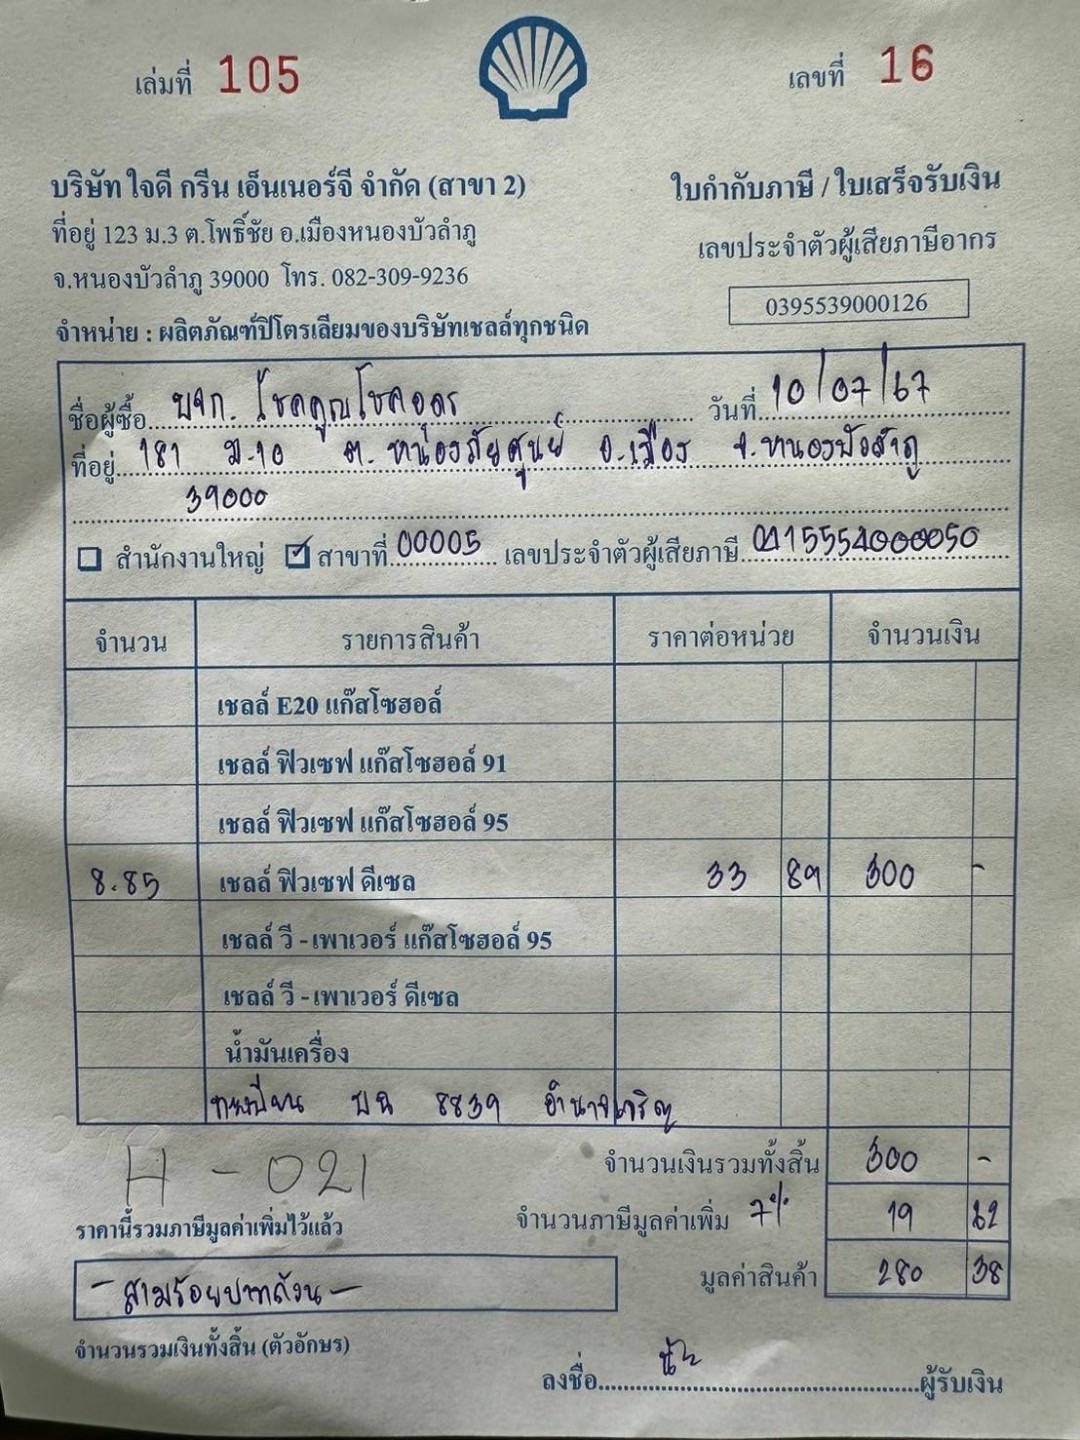 เล่มที่ 105
เลขที่ 16
บริษัท ใจดี กรีน เอ็นเนอร์จี จำกัด (สาขา 2)
ใบกำกับภาษี / ใบเสร็จรับเงิน
ที่อยู่ 123 ม.3 ต.โพธิ์ชัย อ.เมืองหนองบัวลำภู
เลขประจำตัวผู้เสียภาษีอากร
จ.หนองบัวลำภู 39000 โทร. 082-309-9236
0395539000126
จำหน่าย : ผลิตภัณฑ์ปิโตรเลียมของบริษัทเชลล์ทุกชนิด
ชื่อผู้ซื้อ บจก. โชคคูณโชคอุดร วันที่ 10/07/67
ที่อยู่ 181 ม.10 ต. หนองภัยศูนย์ อ.เมือง จ.หนองบัวลำภู
39000
สำนักงานใหญ่ ✓ สาขาที่ 00005 เลขประจำตัวผู้เสียภาษี 0415554000050
จำนวน รายการสินค้า ราคาต่อหน่วย จำนวนเงิน
เชลล์ E20 แก๊สโซฮอล์
เชลล์ ฟิวเซฟ แก๊สโซฮอล์ 91
เชลล์ ฟิวเซฟ แก๊สโซฮอล์ 95
8.85 เชลล์ ฟิวเซฟ ดีเซล 33 89 300 -
เชลล์ วี - เพาเวอร์ แก๊สโซฮอล์ 95
เชลล์ วี - เพาเวอร์ ดีเซล
น้ำมันเครื่อง
ทะเบียน บฉ 8839 อำนาจเจริญ
จำนวนเงินรวมทั้งสิ้น 300 -
H - 021
ราคานี้รวมภาษีมูลค่าเพิ่มไว้แล้ว
จำนวนภาษีมูลค่าเพิ่ม 7% 19 62
มูลค่าสินค้า 280 38
- สามร้อยบาทถ้วน -
จำนวนรวมเงินทั้งสิ้น (ตัวอักษร)
ลงชื่อ ผู้รับเงิน